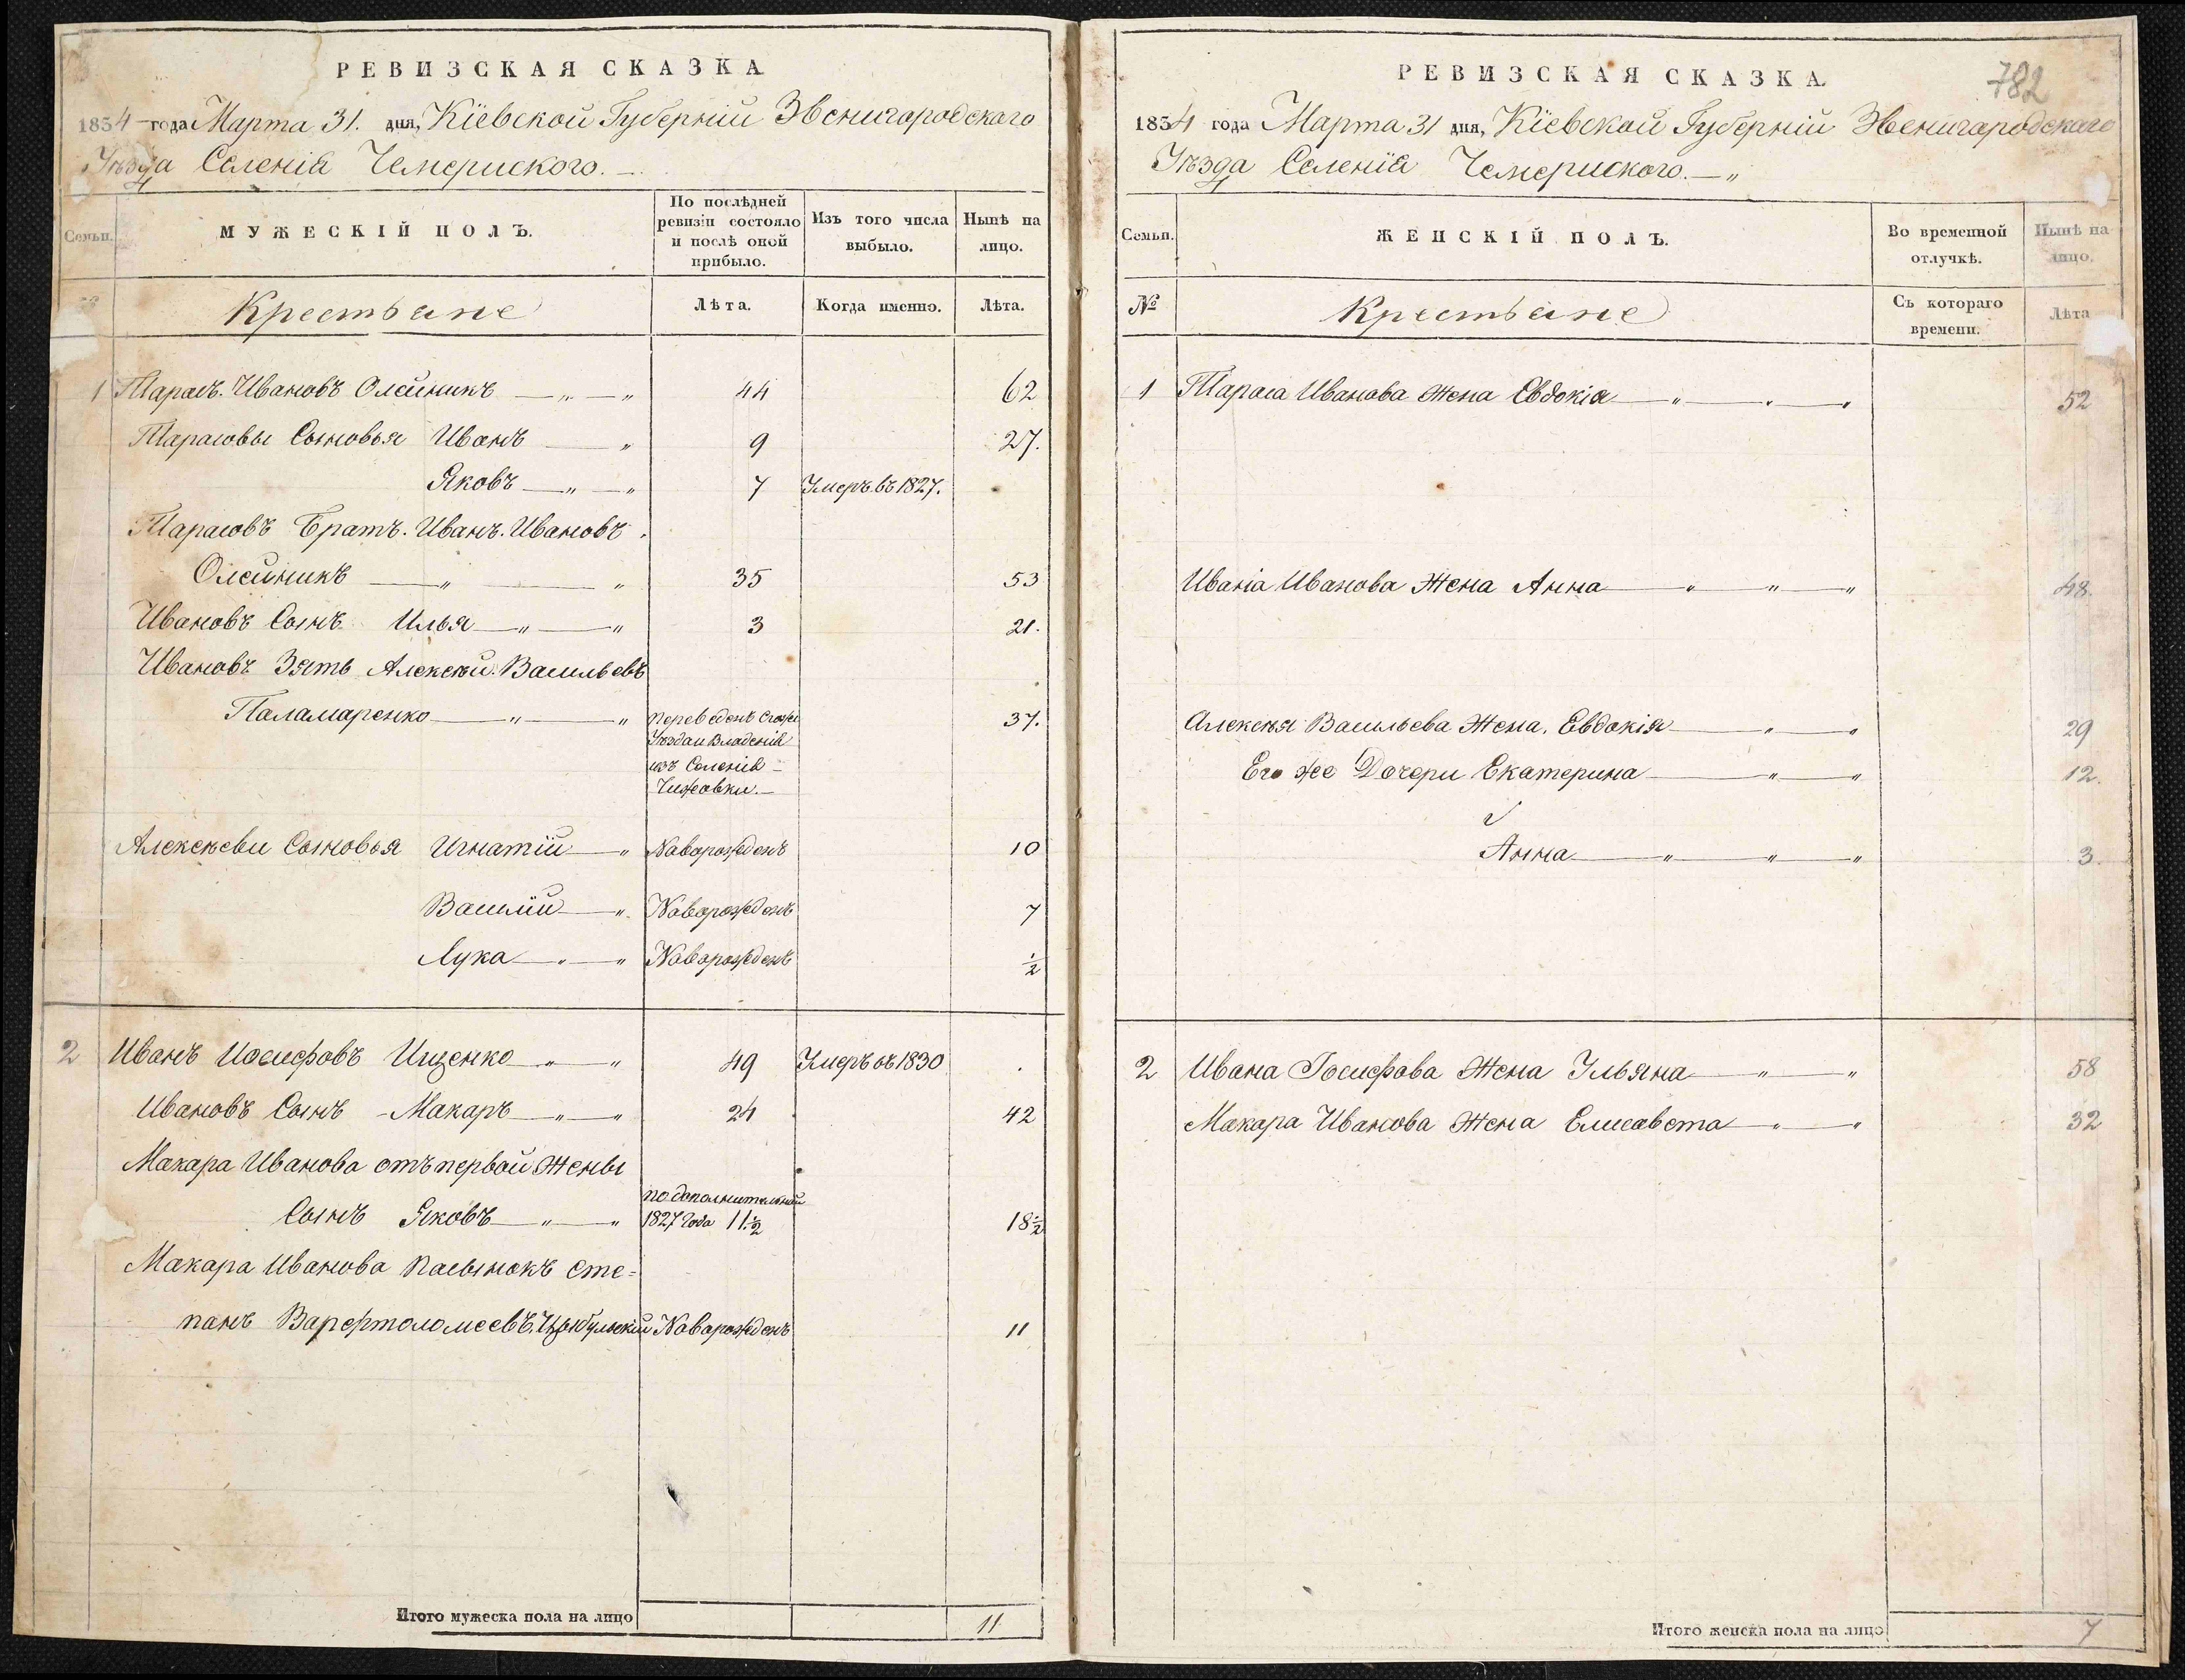 РЕВИЗСКАЯ СКАЗКА
1834 года Марта 31. дня, Кіевской Губерніи Звенигородскаго
Уѣзда Селенія Чемериского.
Семьи.
МУЖЕСКІЙ ПОЛЪ.
По послѣдней ревизіи состояло и послѣ оной прибыло.
Изъ того числа выбыло.
Нынѣ на лицо.
Крестьяне
Лѣта.
Когда именно.
Лѣта.
1 Тарасъ Ивановъ Олейникъ 44 62
Тарасовы Сыновья Иванъ 9 27.
Яковъ 7 Умеръ въ 1827.
Тарасовъ Братъ Иванъ Ивановъ
Олейникъ 35 53
Ивановъ Сынъ Илья 3 21.
Ивановъ Зять Алексѣй Васильевъ
Паламаренко переведенъ 37.
Уѣзда и Владенія
изъ Селенія
Чижовки.
Алексѣеви Сыновья Игнатій Новорожденъ 10
Василій Новорожденъ 7
Лука Новорожденъ ½
2 Иванъ Иосифовъ Ищенко 49 Умеръ въ 1830
Ивановъ Сынъ Макаръ 24 42
Макара Иванова отъ первой Жены
Сынъ Яковъ по дополнительной 1827 Года 11½ 18½
Макара Иванова пасынокъ Сте=
панъ Варфтоломеевъ Цыбульскій Новорожденъ 11
Итого мужеска пола на лицо 11
782
РЕВИЗСКАЯ СКАЗКА.
1834 года Марта 31 дня, Кіевской Губерніи Звенигородскаго
Уѣзда Селенія Чемериского.
Семьи.
ЖЕНСКІЙ ПОЛЪ.
Во временной отлучкѣ.
Нынѣ на лицо.
№
Крестьяне
Съ котораго времени.
Лѣта
1 Тараса Иванова Жена Евдокія 52
Ивана Иванова Жена Анна 48.
Алексѣя Васильева Жена Евдокія 29
Его же Дочери Екатерина 12.
Анна 3.
2 Ивана Иосифова Жена Ульяна 58
Макара Иванова Жена Елисавета 32
Итого женска пола на лицо 7